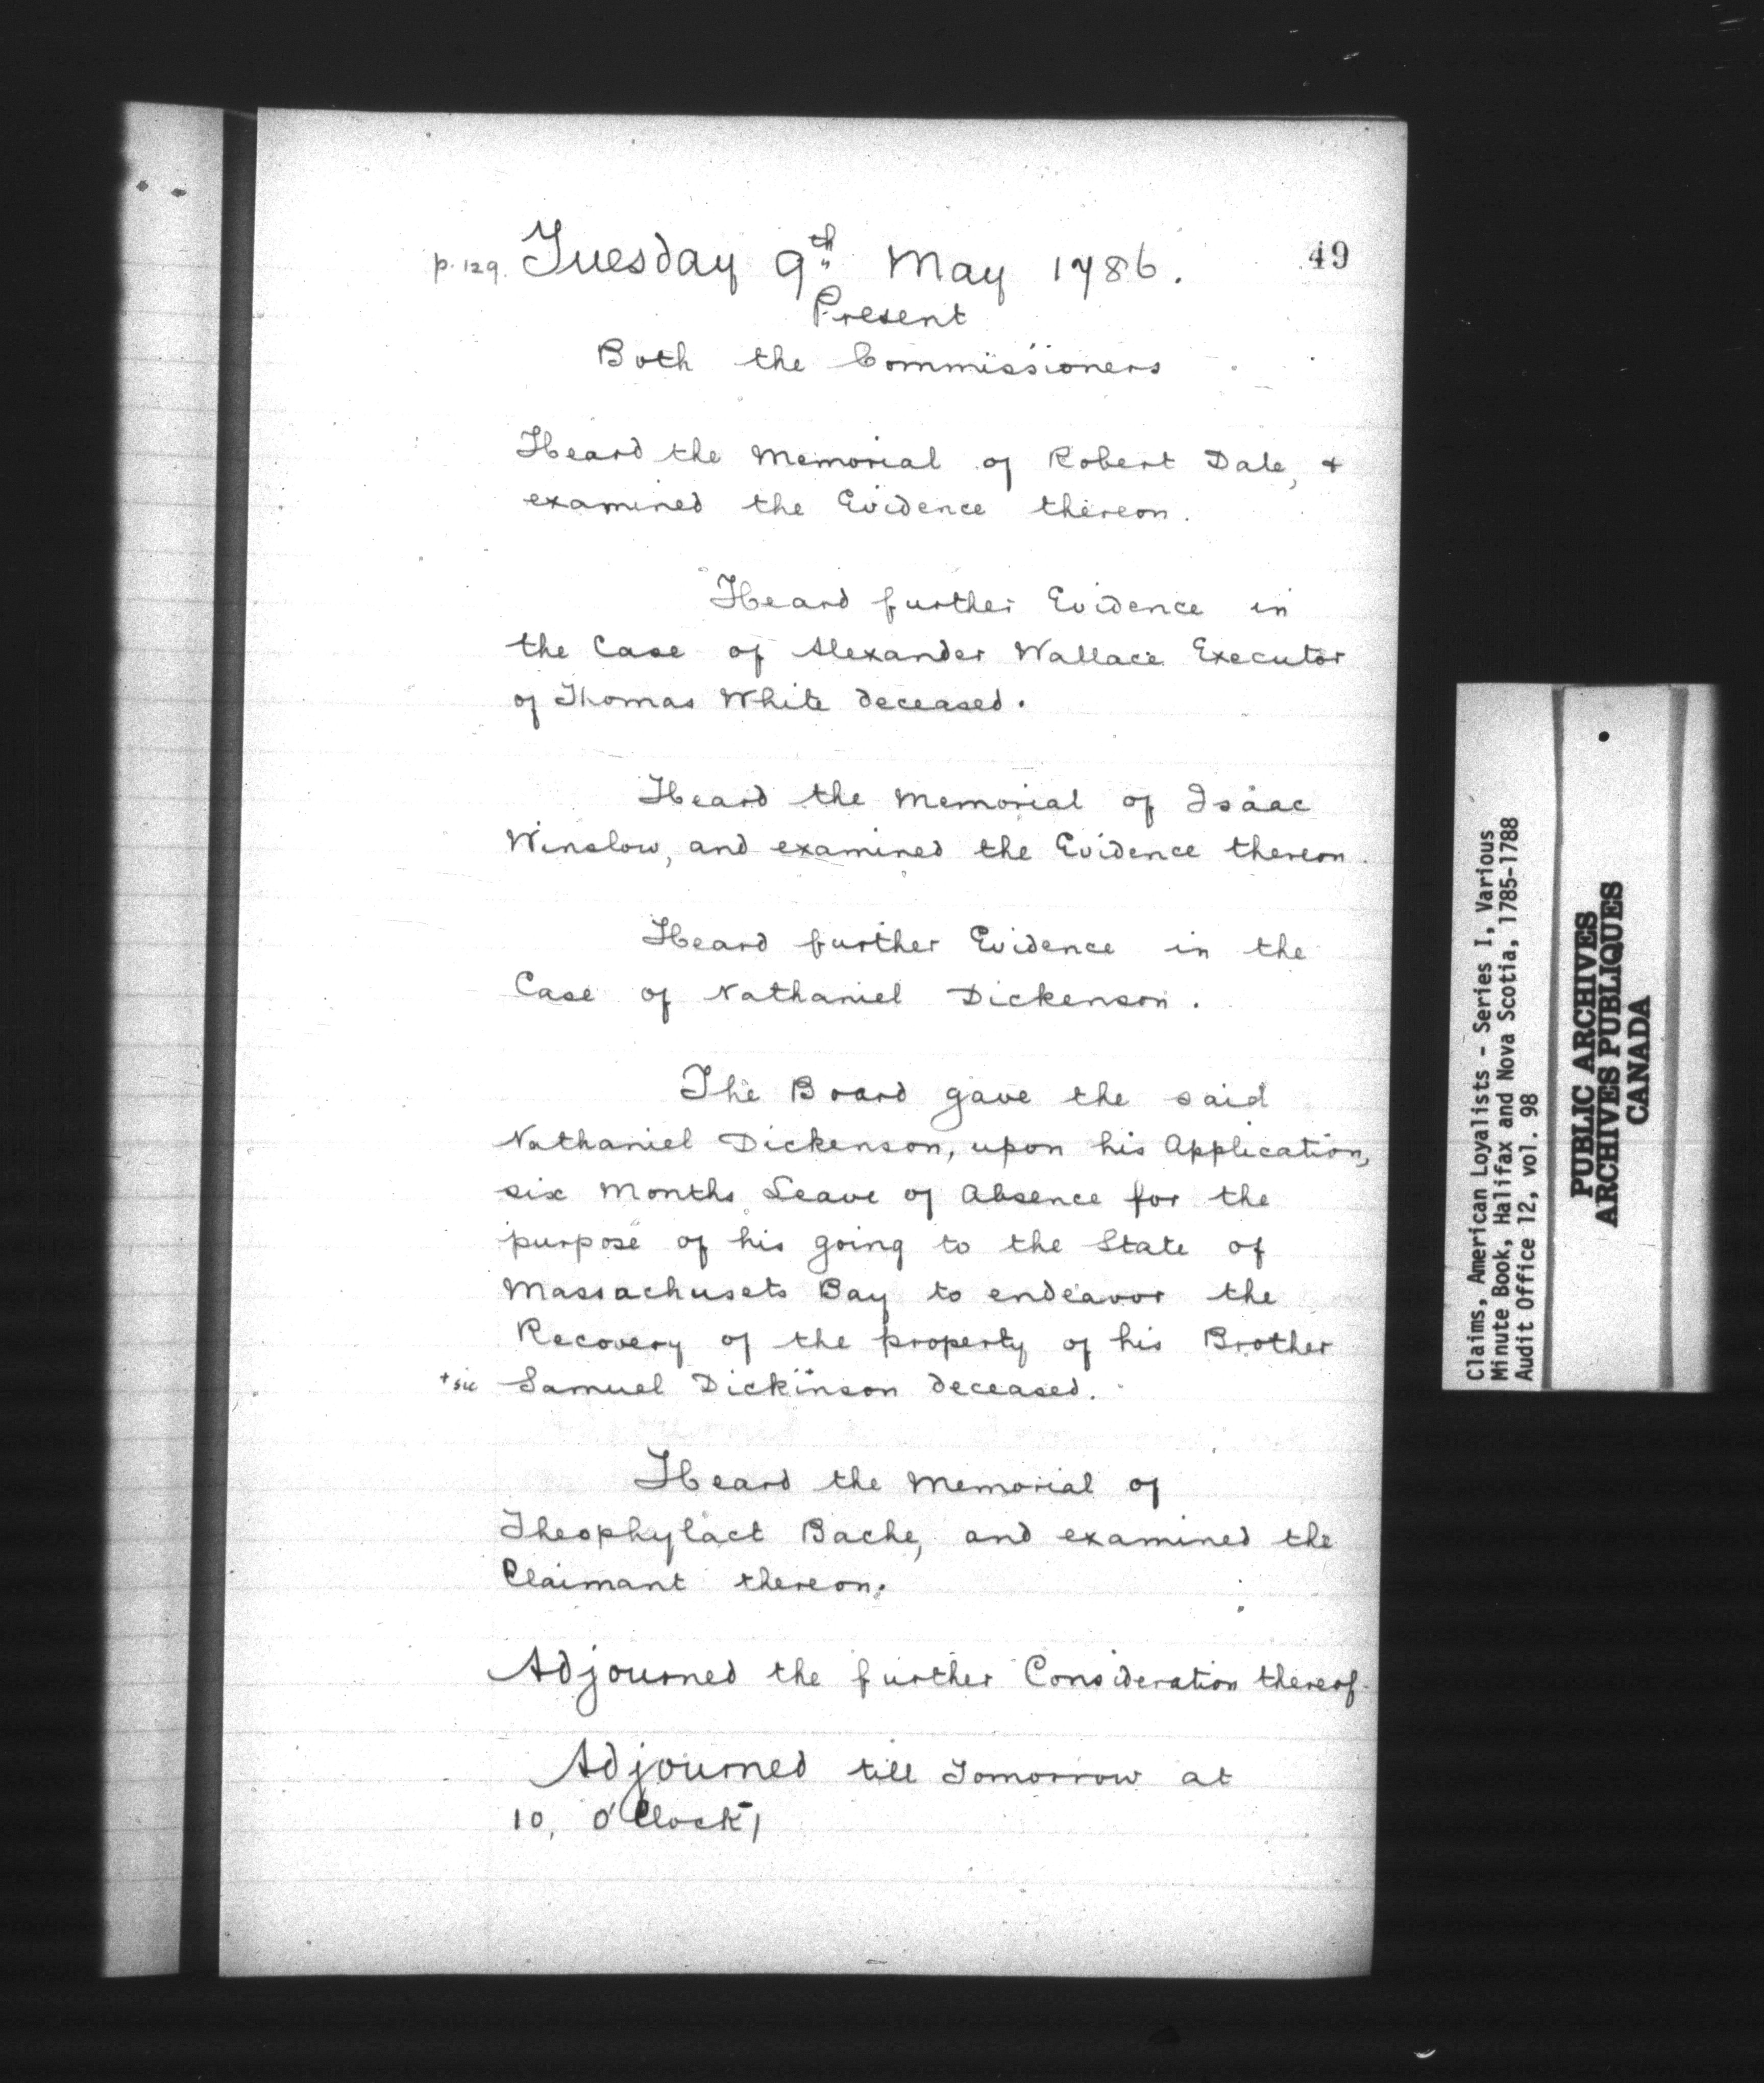 49
p. 129. Tuesday 9th May 1786.
Present
Both the Commissioners
Heard the Memorial of Robert Dale, &
examined the Evidence thereon.
Heard further Evidence in
the Case of Alexander Wallace Executor
of Thomas White deceased.
Heard the Memorial of Isaac
Winslow, and examined the Evidence thereon.
Heard further Evidence in the
Case of Nathaniel Dickenson.
The Board gave the said
Nathaniel Dickenson, upon his Application,
six Months Leave of Absence for the
purpose of his going to the State of
Massachusets Bay to endeavor the
Recovery of the property of his Brother
+ sic Samuel Dickinson deceased.
Heard the Memorial of
Theophylact Bache, and examined the
Claimant thereon.
Adjourned the further Consideration thereof.
Adjourned till Tomorrow at
10, O'Clock
Claims, American Loyalists - Series I, Various
Minute Book, Halifax and Nova Scotia, 1785-1788
Audit Office 12, vol. 98
PUBLIC ARCHIVES
ARCHIVES PUBLIQUES
CANADA